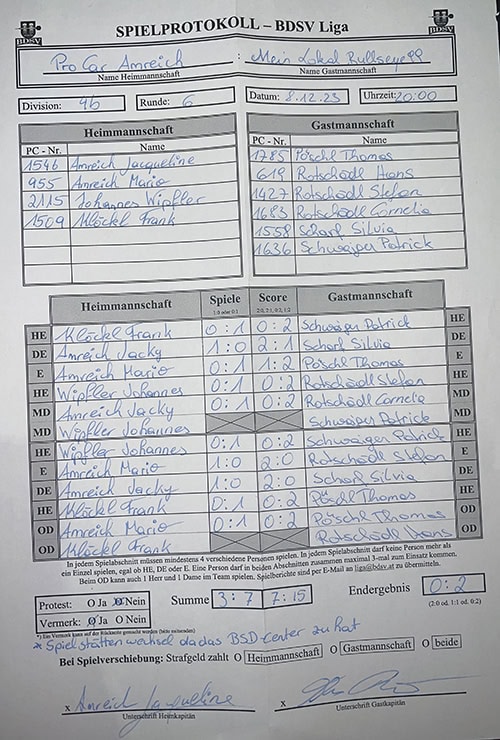 SPIELPROTOKOLL – BDSV Liga
BDSV
BDSV
Pro Car Amreich : Mein Lokal Bullseye 99
Name Heimmannschaft Name Gastmannschaft
Division: 4b Runde: 6 Datum: 8.12.23 Uhrzeit: 20:00
Heimmannschaft Gastmannschaft
PC - Nr. Name PC - Nr. Name
1546 Amreich Jacqueline 1785 Pöschl Thomas
955 Amreich Mario 619 Rotschädl Hans
2115 Johannes Wipfler 1427 Rotschädl Stefan
1509 Klöckl Frank 1683 Rotschädl Cornelia
1558 Scharf Silvia
1636 Schwaiger Patrick
Heimmannschaft Spiele Score Gastmannschaft
1:0 oder 0:1 2:0, 2:1, 0:2, 1:2
HE Klöckl Frank 0:1 0:2 Schwaiger Patrick HE
DE Amreich Jacky 1:0 2:1 Scharf Silvia DE
E Amreich Mario 0:1 1:2 Pöschl Thomas E
HE Wipfler Johannes 0:1 0:2 Rotschädl Stefan HE
MD Amreich Jacky 0:1 0:2 Rotschädl Cornelia MD
MD Wipfler Johannes Schwaiger Patrick MD
HE Wipfler Johannes 0:1 0:2 Schwaiger Patrick HE
E Amreich Mario 1:0 2:0 Rotschädl Stefan E
DE Amreich Jacky 1:0 2:0 Scharf Silvia DE
HE Klöckl Frank 0:1 0:2 Pöschl Thomas HE
OD Amreich Mario 0:1 0:2 Pöschl Thomas OD
OD Klöckl Frank Rotschädl Hans OD
In jedem Spielabschnitt müssen mindestens 4 verschiedene Personen spielen. In jedem Spielabschnitt darf keine Person mehr als
ein Einzel spielen, egal ob HE, DE oder E. Eine Person darf in beiden Abschnitten zusammen maximal 3-mal zum Einsatz kommen.
Beim OD kann auch 1 Herr und 1 Dame im Team spielen. Spielberichte sind per E-Mail an liga@bdsv.at zu übermitteln.
Protest: O Ja O Nein Summe 3:7 7:15 Endergebnis 0:2
Vermerk: O Ja O Nein (2:0 od. 1:1 od. 0:2)
*) Ein Vermerk kann auf der Rückseite gemacht werden (bitte ankreuzen)
* Spielstättenwechsel da das BSD-Center zu hat
Bei Spielverschiebung: Strafgeld zahlt O Heimmannschaft O Gastmannschaft O beide
x Amreich Jacqueline x
Unterschrift Heimkapitän Unterschrift Gastkapitän